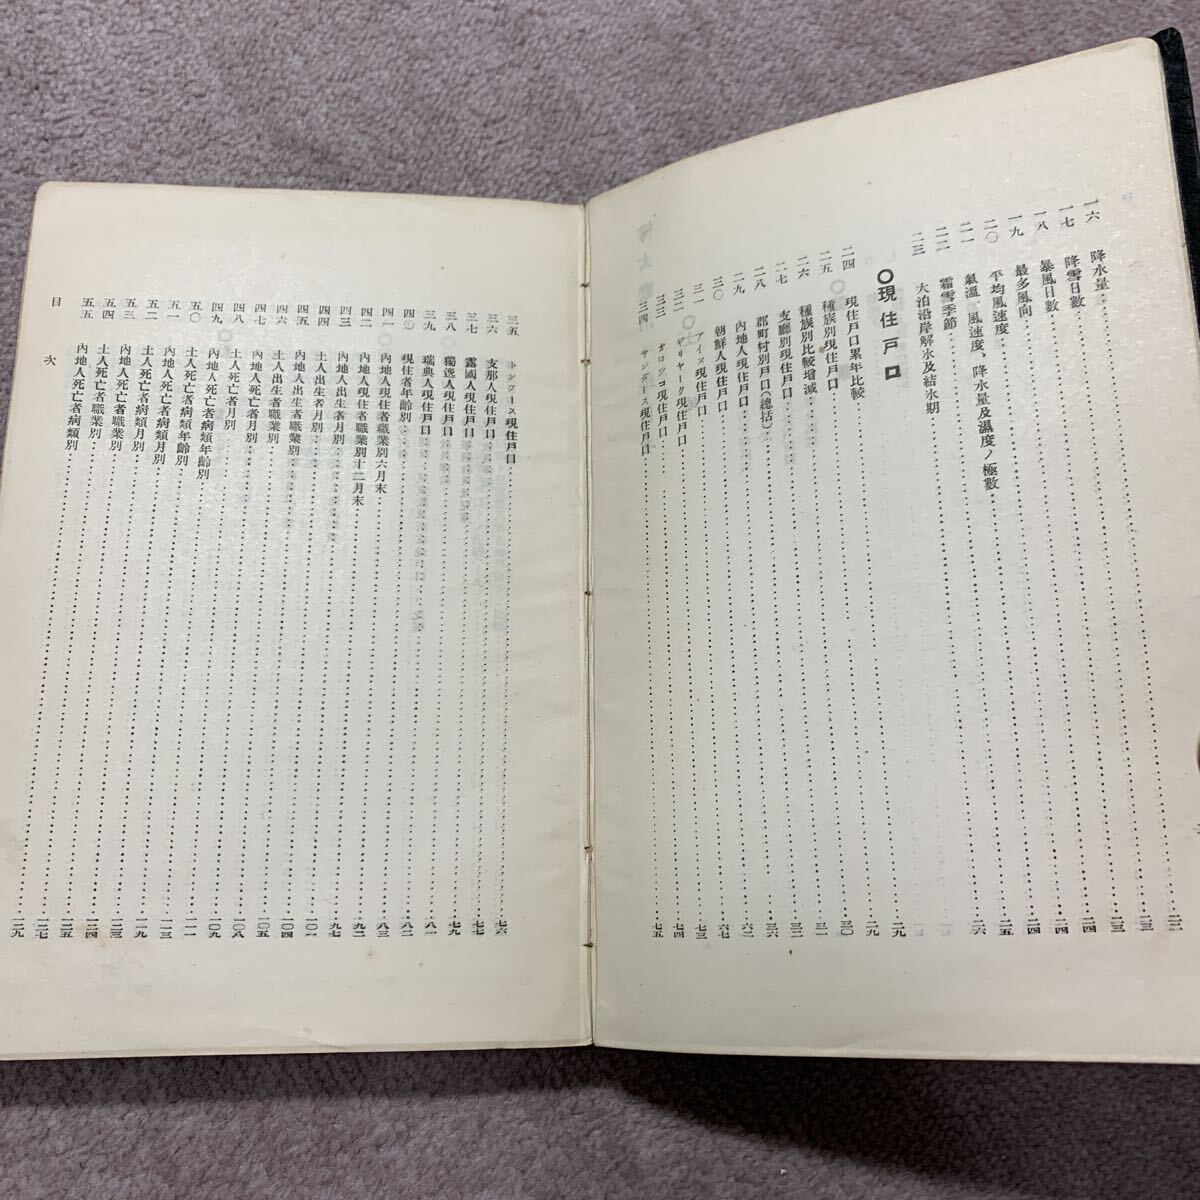 一六 降水量 二二
一七 降雪日數 二三
一八 暴風日數 二三
一九 最多風向 二四
二〇 平均風速度 二四
二一 氣溫、風速度、降水量及濕度ノ極數 二五
二二 霜雪季節 二六
二三 大泊沿岸解氷及結氷期
〇現住戸口 二九
二四 現住戸口累年比較 二九
二五 種族別現住戸口 三〇
二六 種族別比較增減 三一
二七 支廳別現住戸口 三二
二八 郡町村別戸口(總括) 三六
二九 內地人現住戸口 六二
三〇 朝鮮人現住戸口 六七
三一 アイヌ現住戸口 七三
三二 ギリヤーク現住戸口 七四
三三 オロッコ現住戸口
三四 サンダース現住戸口 七五
三五 トンクース現住戸口 七六
三六 支那人現住戸口 七七
三七 露國人現住戸口
三八 獨逸人現住戸口 七九
三九 瑞典人現住戸口 八一
四〇 現住者年齡別 八二
四一 內地人現住者職業別六月末 八三
四二 內地人現住者職業別十二月末 九二
四三 內地人出生者月別 九七
四四 土人出生者月別 一〇一
四五 內地人出生者職業別 一〇四
四六 土人出生者職業別 一〇五
四七 內地人死亡者月別
四八 土人死亡者月別 一〇八
四九 內地人死亡者病類年齡別 一〇九
五〇 土人死亡者病類年齡別 一一一
五一 內地人死亡者病類月別 一一三
五二 土人死亡者病類月別 一一九
五三 內地人死亡者職業別 一二三
五四 土人死亡者職業別 一二四
五五 內地人死亡者病類別 一二五
目次